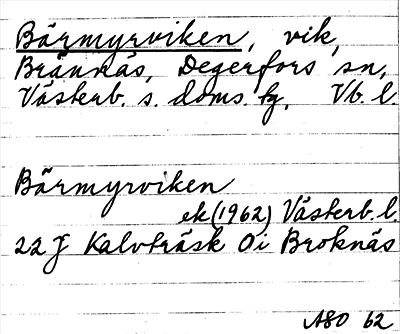 Bärmyrviken, vik,
Brännäs, Degerfors sn,
Västerb. s. doms. fg, Vb. l.
Bärmyrviken
ek (1962) Västerb. l.
22 J Kalvträsk 0i Broknäs
ASO 62